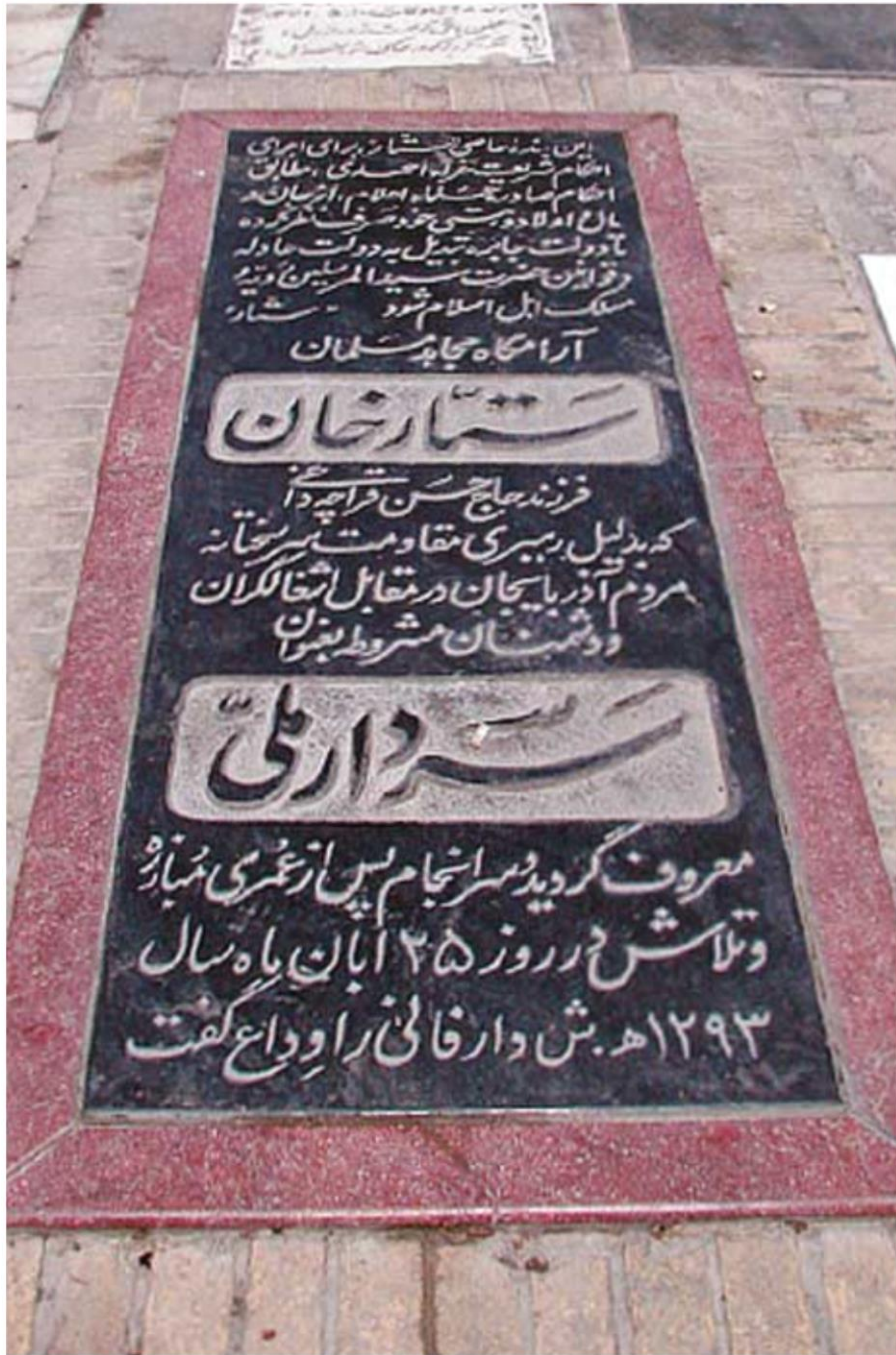 این بنده عاصی ستار، برای اجرای
احکام شریعت غراء احمدی، مطابق
احکام صادره علماء اعلام، از جان و
مال و اولاد و هستی خود صرف نظر کرده
تا دولت جابره تبدیل به دولت عادله
و قوانین حضرت سیدالمرسلین و
مسلک اهل اسلام شود - ستار
آرامگاه مجاهد مسلمان
ستّارخان
فرزند حاج حسن قراچه داغی
که بدلیل رهبری مقاومت سرسختانه
مردم آذربایجان در مقابل اشغالگران
و دشمنان مشروطه بعنوان
سردار ملّی
معروف گردید و سرانجام پس از عُمری مُبارزه
و تلاش در روز ۲۵ آبان ماه سال
۱۲۹۳ ه.ش دار فانی را وداع گفت